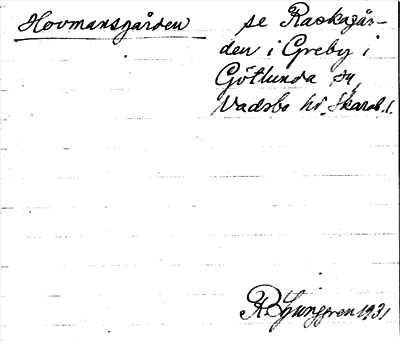 Hovmansgården se Raskagår-
den i Greby i
Götlunda sn,
Vadsbo hd, Skarab. l.
R Ljunggren 1931